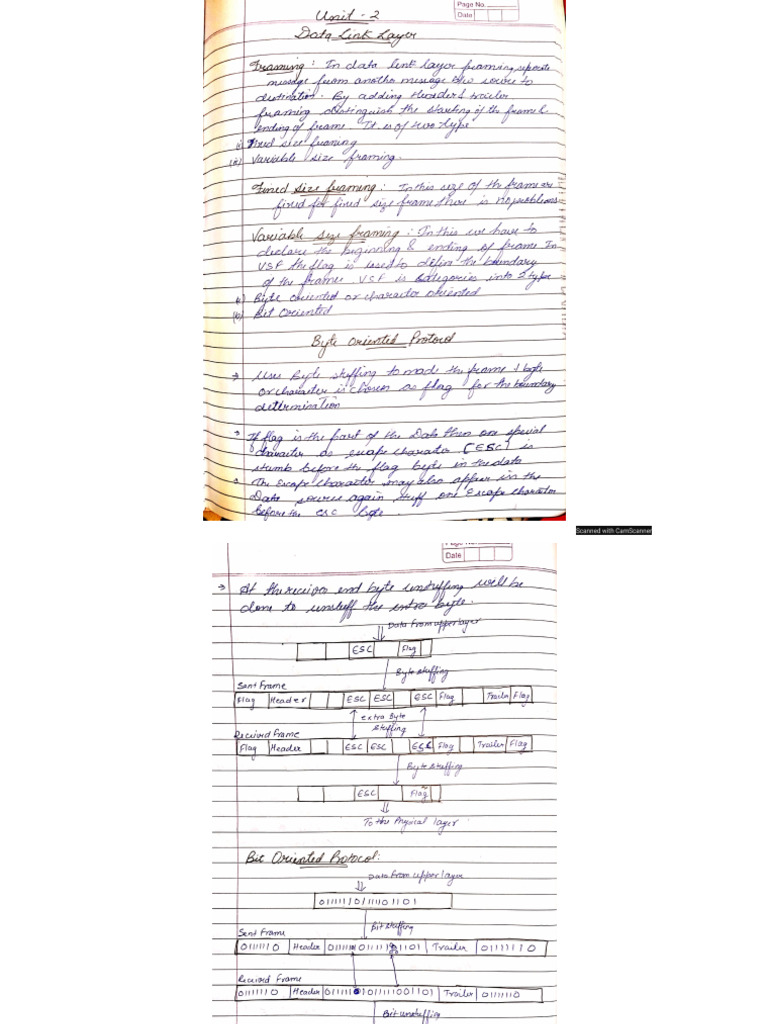 Page No.
Date
Unit - 2
Data Link Layer
Framing : In data link layer framing, separate
message from another message b/w source to
destination. By adding Header & trailer
framing distinguish the starting of the frame &
ending of frame. It is of two type
(i) Fixed size framing
(ii) Variable size framing.
Fixed size framing : In this size of the frame are
fixed for fixed size frame there is no problems
Variable size framing : In this we have to
declare the beginning & ending of frame In
VSF the flag is used to define the boundary
of the frames VSF is categories into 2 type
Byte oriented or character oriented
Bit Oriented
Byte Oriented Protocol
→ Uses Byte stuffing to made the frame 1 byte
or character is chosen as flag for the boundary
determination
→ If flag is the part of the Data then one special
character as escape character (ESC) is
before the flag byte in the data
The Escape character may also appear in the
Data again stuff one Escape character
before the esc byte.
Scanned with CamScanner
Page No.
Date
→ At the reciver end byte unstuffing will be
done to unstuff the extra byte.
Data From upper layer
ESC Flag
Byte stuffing
Sent Frame
Flag Header ESC ESC ESC Flag Trailer Flag
extra Byte
stuffing
Recived Frame
Flag Header ESC ESC ESC Flag Trailer Flag
Byte stuffing
ESC Flag
To the Physical layer
Bit Oriented Protocol:
Data From upper layer
Bit stuffing
Sent Frame
01111110 Header Trailer 01111110
Recived Frame
01111110 Header Trailer
Bit unstuffing